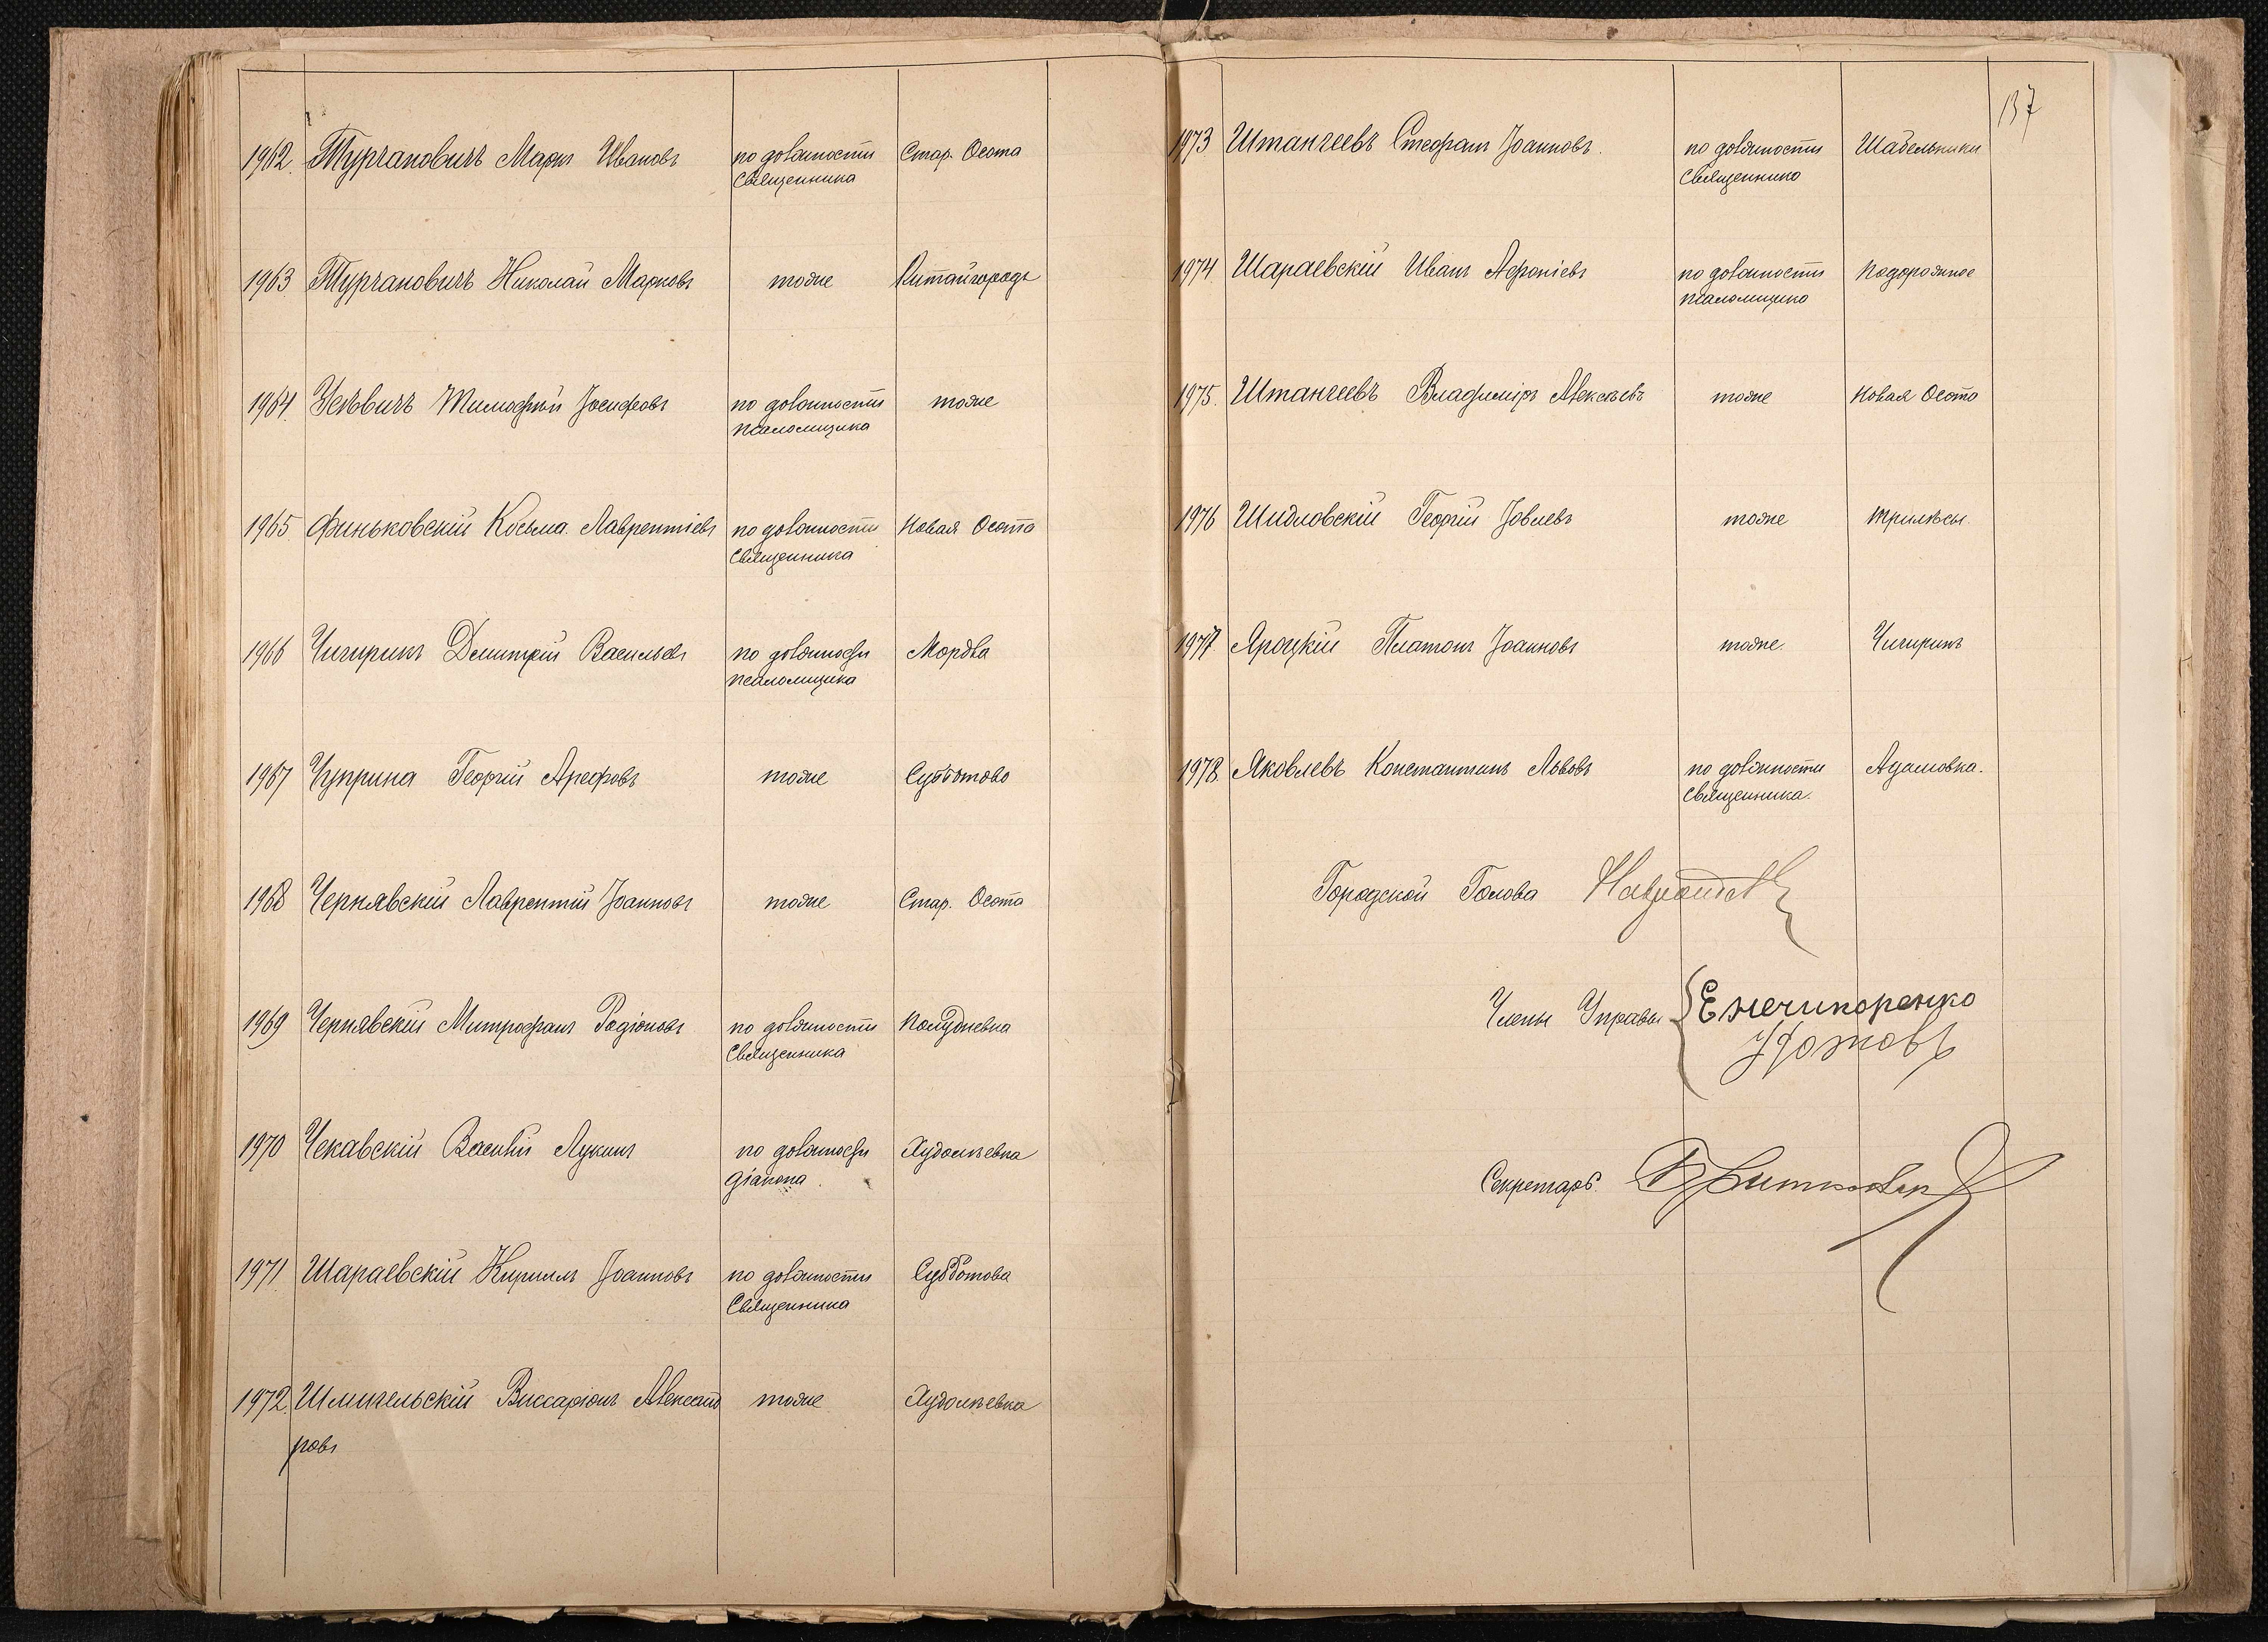 1962. Турчановичъ Маркъ Ивановъ по должности Стар. Осота
Священника
1963 Турчановичъ Николай Марковъ тоже Китайгородъ
1964. Тимофей Іосифовъ по должности тоже
псаломщика
1965 Финьковскій Косьма Лаврентіевъ по должности Новая Осота
Священника
1966 Чигиринъ Димитрій Васильевъ по должности Мордва
псаломщика
1967 Чуприна Георгій Арефовъ тоже Субботово
1968 Чернявскій Лаврентій Іоанновъ тоже Стар. Осота
1969 Чернявскій Митрофанъ Родіоновъ по должности Полудневка
Священника
1970 Чекавскій Василій Лукинъ по должности Худолѣевка
діакона
1971 Шараевскій Кириллъ Іоанновъ по должности Субботова
Священника
1972 Шмигельскій Виссаріонъ Александ тоже Худолѣевка
ровъ
137
1973 Штангеевъ Стефанъ Іоанновъ по должности Шабельники
Священника
1974 Шараевскій Иванъ Афоніевъ по должности Подорожное
псаломщика
1975. Штангеевъ Владиміръ Алексѣевъ тоже Новая Осота
1976 Шидловскій Георгій Іовлевъ тоже Трилѣсы
1977 Яроцкій Платонъ Іоанновъ тоже Чигиринъ
1978 Яковлевъ Константинъ Львовъ по должности Адамовка.
Священника.
Городской Голова
Члены Управы Е Нечипоренко
Секретарь